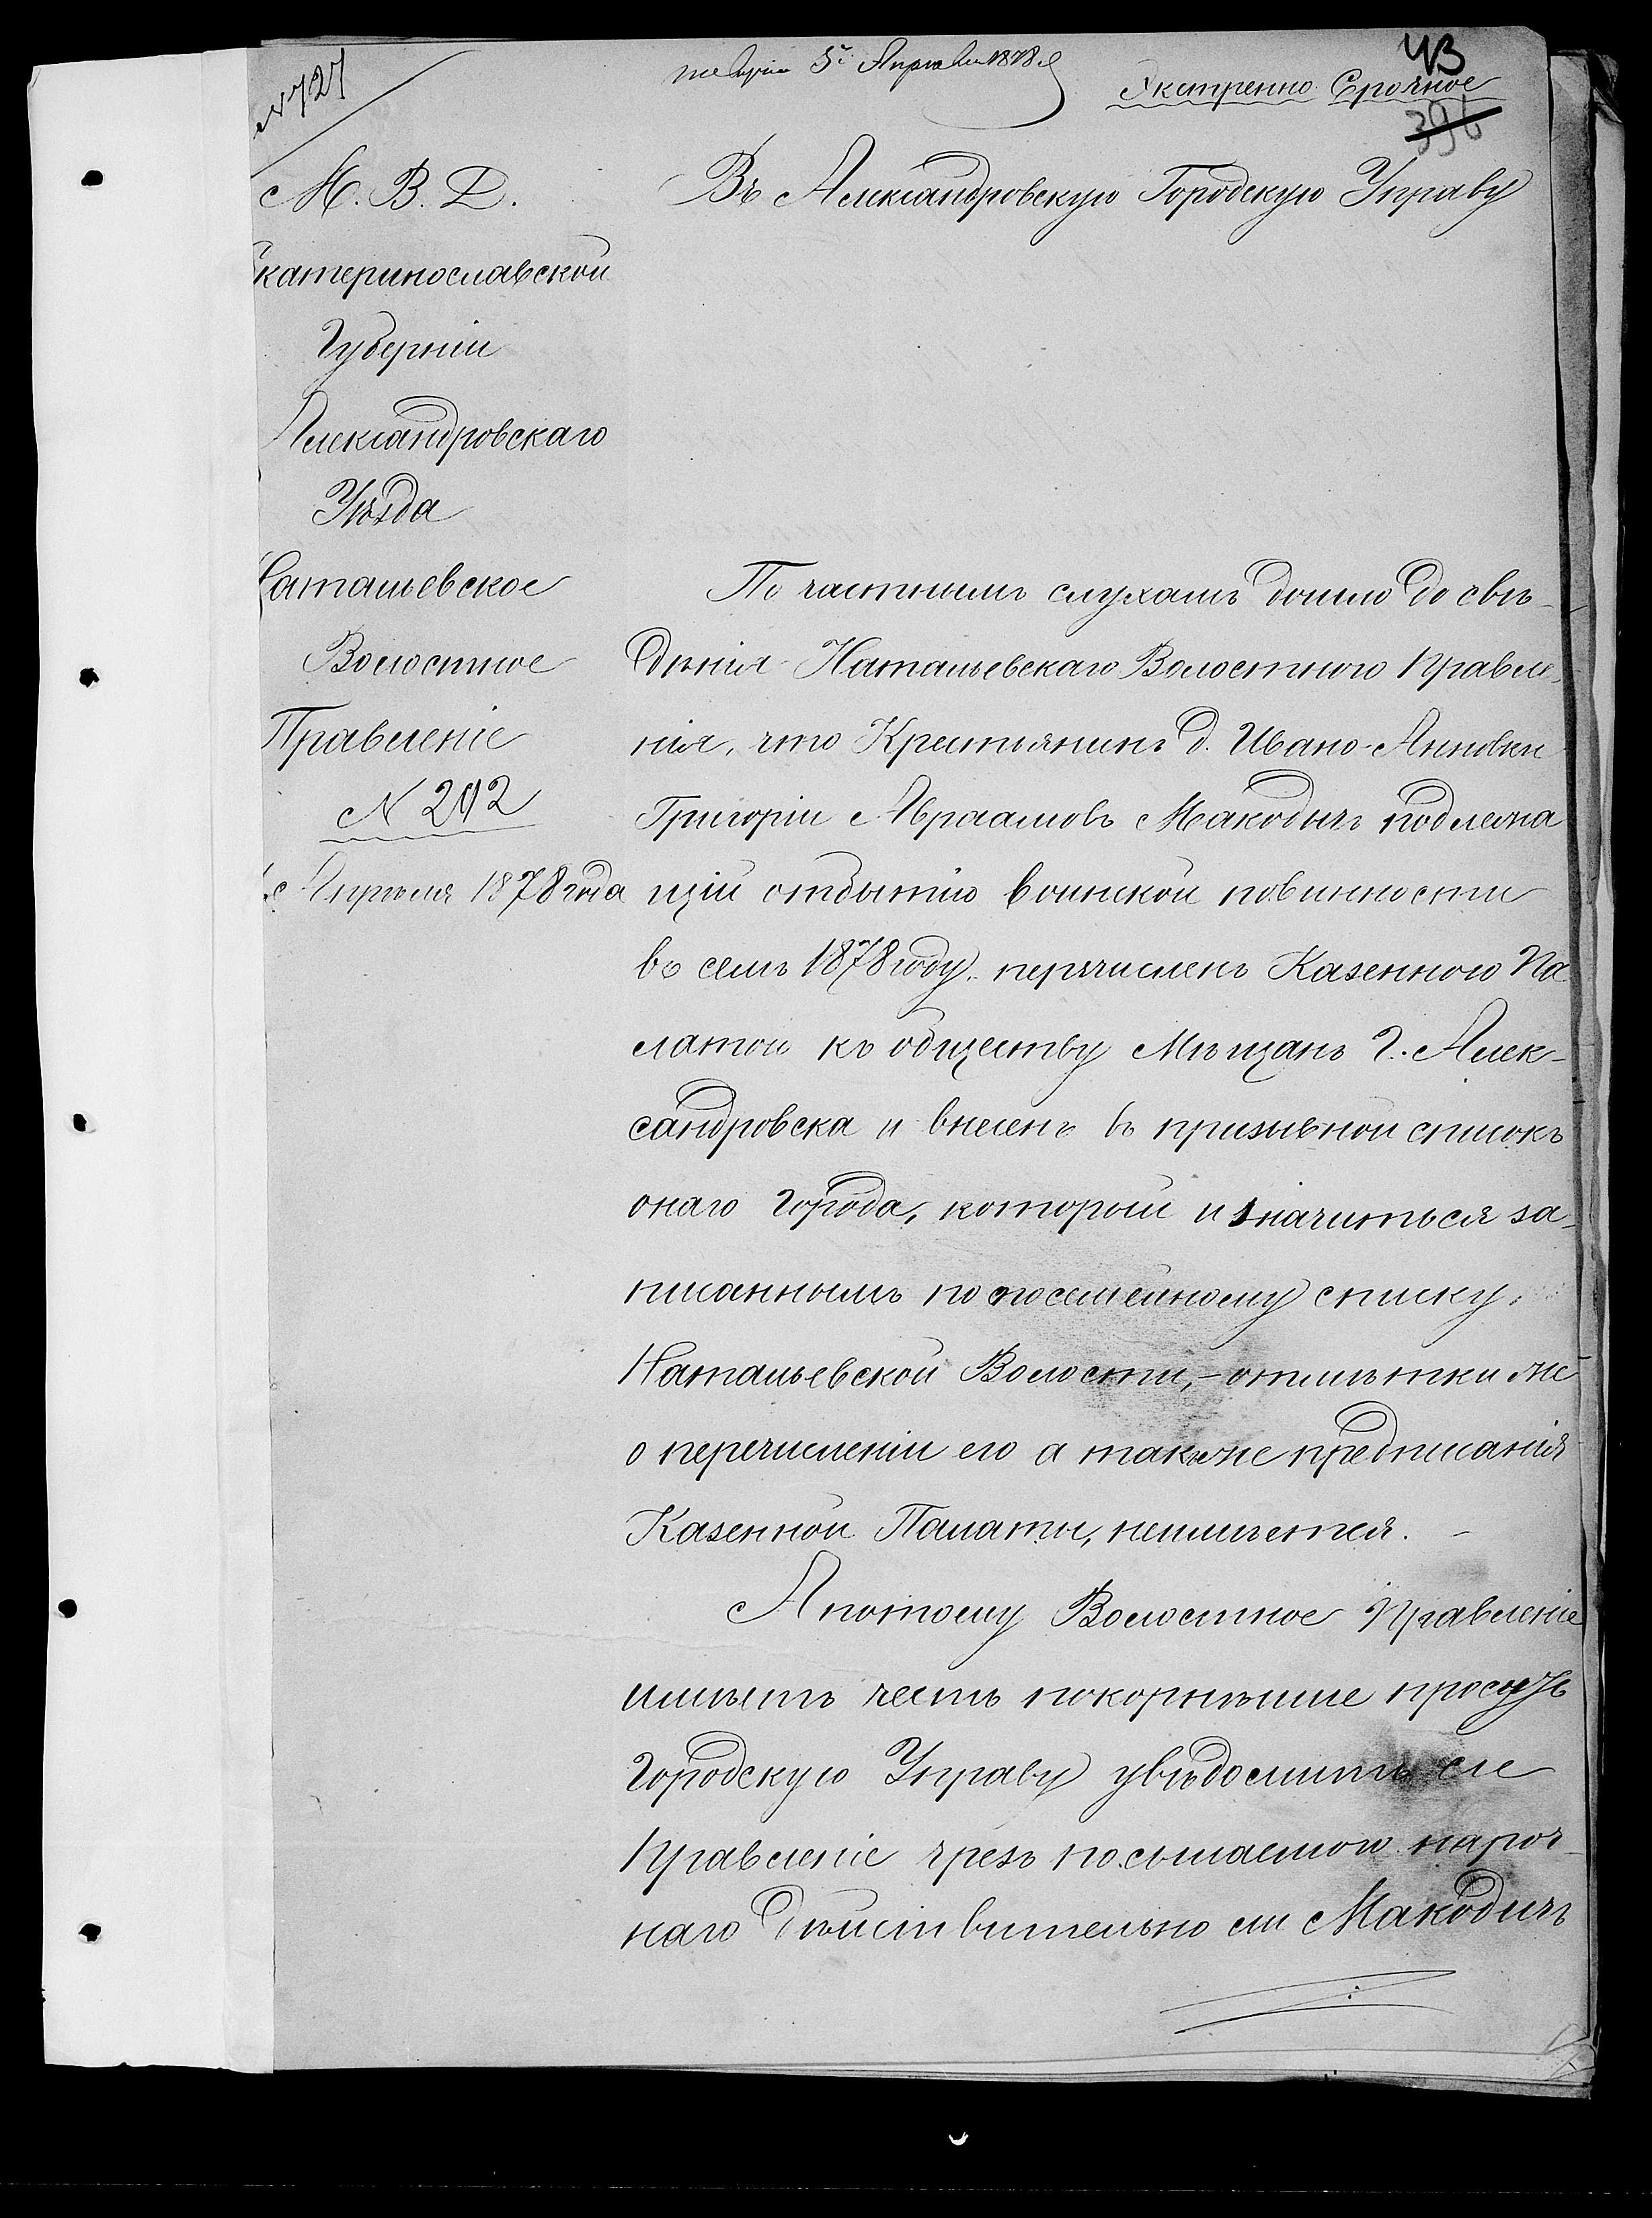 № 727
5го Апреля 1878
43
Экстренно Срочное
396
М. В. Д.
Екатеринославской
Губерніи
Александровскаго
Уѣзда
Натальевское
Волостное
Правленіе
№ 212
Апрѣля 1878 года
Въ Александровскую Городскую Управу
По частнымъ слухамъ дошло до свѣ-
дѣнія Натальевскаго Волостного Правле-
нія, что Крестьянинъ д. Ивано-Анновки
Григорій Авраамовъ Макодычъ подлежа
щій отбытію воинской повинности
въ семъ 1878 году, перечисленъ Казенною Па
латою къ обществу Мѣщанъ г. Алек-
сандровска и внесенъ въ призывной списокъ
онаго города, который и значиться за-
писаннымъ по посемейному списку
Натальевской Волости,- отмѣтки же
о перечисленіи его а такъже предписанія
Казенной Палаты, неимѣется. -
А потому Волостное Правленіе
имѣетъ честь покорнѣише просить
Городскую Управу увѣдомить сие
Правленіе чрезъ посылаемого нароч-
наго дѣйствительно ли Макодычъ